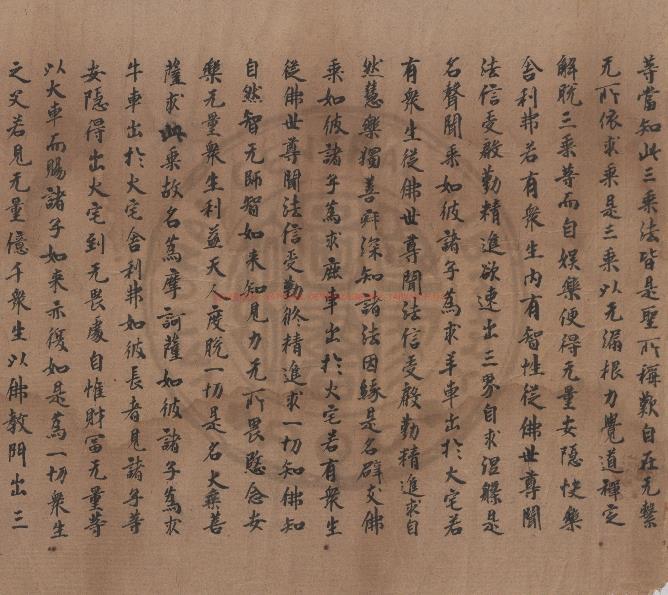 等當知此三乘法皆是聖所稱歎自在无繫
无所依求乘是三乘以无漏根力覺道禪定
解脫三昧等而自娛樂便得无量安隱快樂
舍利弗若有衆生內有智性從佛世尊聞
法信受慇勤精進欲速出三界自求涅槃是
名聲聞乘如彼諸子為求羊車出於火宅若
有衆生從佛世尊聞法信受慇勤精進求自
然慧樂獨善寂深知諸法因緣是名辟支佛
乘如彼諸子為求鹿車出於火宅若有衆生
從佛世尊聞法信受勤脩精進求一切知佛知
自然智无師智如来知見力无所畏愍念安
樂无量衆生利益天人度脫一切是名大乘菩
薩求此乘故名為摩訶薩如彼諸子為求
牛車出於火宅舍利弗如彼長者見諸子等
安隱得出火宅到无畏處自惟財富无量等
以大車而賜諸子如来亦復如是為一切衆生
之父若見无量億千衆生以佛教門出三